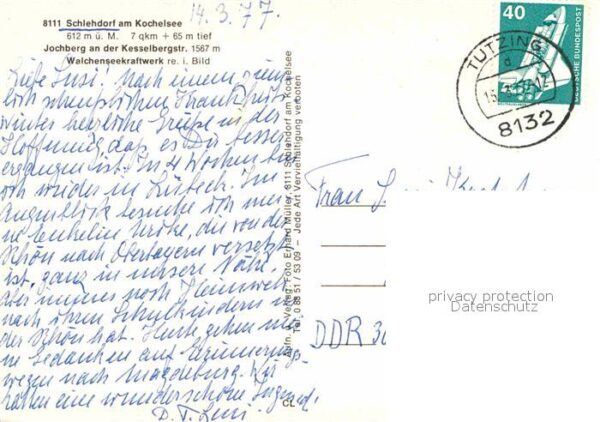 14.3.77.
8111 Schlehdorf am Kochelsee
612 m ü. M. 7 qkm + 65 m tief
Jochberg an der Kesselbergstr. 1567 m
Walchenseekraftwerk re. i. Bild
Liebe Susi! Nach einem ziem-
lich scheusslichen Krankheits-
winter herzliche Grüße in der
Hoffnung, daß es Dir besser
ergangen ist. In 4 Wochen bin
ich wieder in Lübeck. Im
Augenblick besuche ich mei-
ne Enkelin Urike, die von der
Schön nach Oberbayern versetzt
ist, ganz in unsere Nähe.
aber immer noch Heimweh
nach ihren Schulkindern in
der Schön hat. Heute gehen m.
die Gedanken auf Erinnerungs-
wegen nach Magdeburg. Wir
hatten eine wunderschöne Jugend.
D. T. Leni
CL
Aufn. u. Verlag: Foto Erhard Müller, 8111 Schlehdorf am Kochelsee
Tel. 0 88 51 / 53 09 — Jede Art Vervielfältigung verboten
40
DEUTSCHE BUNDESPOST
TUTZING
d
8132
Frau
DDR 30
privacy protection
Datenschutz